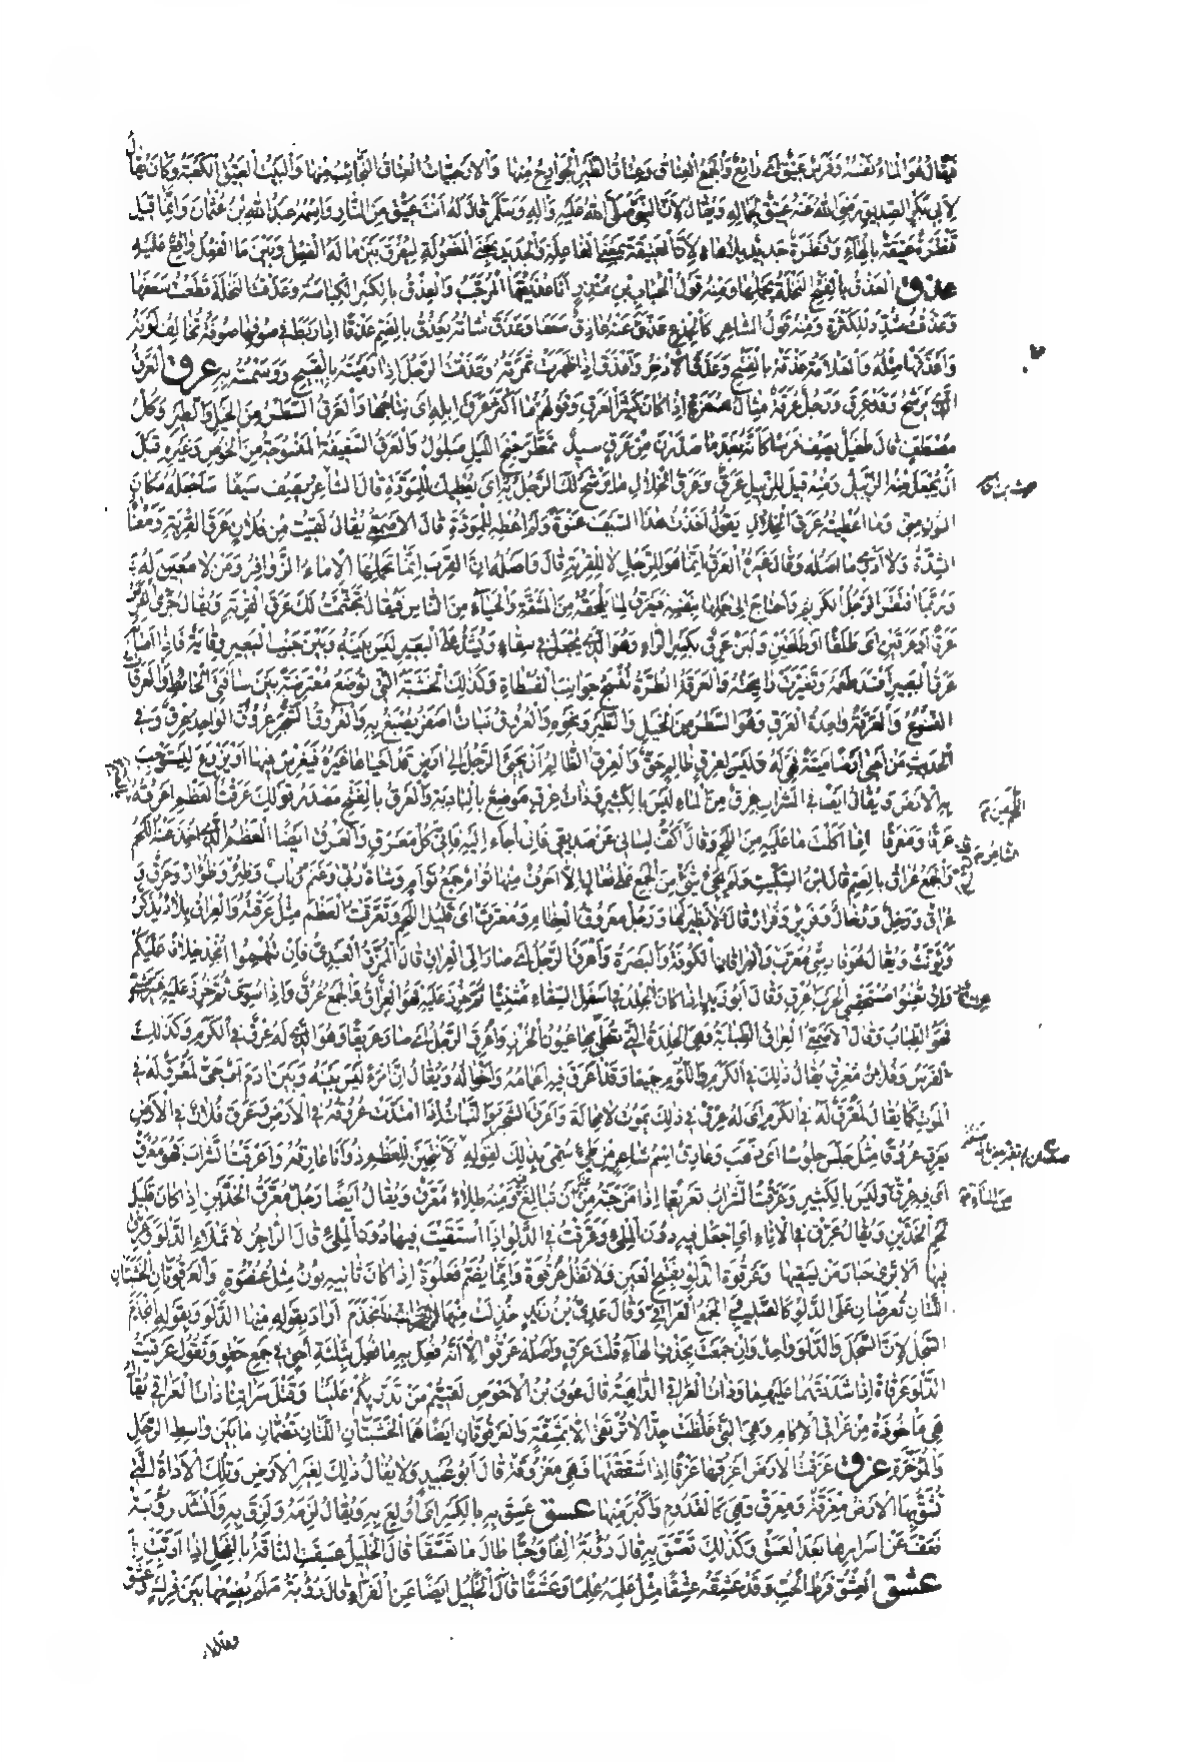 فيقال هو الماء نفسه وفرس عتيق أي رائع والجمع العتاق وعتاق الطير الجوارح منها والارحبيات العتاق النجائب منها والبيت العتيق الكعبة وكان يقال
لأبي بكر الصديق رضي الله عنه عتيق لجماله ويقال لأن النبي صلى الله عليه واله وسلم قال له أنت عتيق من النار واسمه عبد الله بن عثمان وانما قيل
قنطرة عتيقة بالهاء وقنطرة جديد بلا هاء لأن العتيقة بمعنى الفاعلة والجديد بمعنى المفعولة ليفرق بين ما له الفعل وبين ما الفعل واقع عليه
عذق العذق بالفتح النخلة بحملها ومنه قول الحباب بن منذر أنا عذيقها المرجب والعذق بالكسر الكباسة وعذقت النخلة قطعت سعفها
وعذقت شدد للكثرة ومنه قول الشاعر كالجذع عذق عنه عاذق سعفا وعذق شاته يعذق بالضم عذقا اذا ربط في صوفها صوفة تخالف لونه
وأعذقها مثله والعلامة عذقة بالفتح وعذق الاذخر وأعذق اذا ظهرت ثمرته وعذقت الرجل اذا رميته بالقبيح ووسمته به عرق العرق
الذي يرشح وقد عرق ورجل عرقة مثال همزة اذا كان كثير العرق وقولهم ما أكثر عرق ابله اى نتاجها والعرق السطر من الخيل والطير وكل
مصطف قال طفيل يصف فرسا كأنه بعد ما صدرن من عرق سيد تمطر جنح الليل مبلول والعرق السفيفة المنسوجة من الخوص وغيره قبل
أن يجعل منه الزبيل ومنه قيل للزبيل عرق وعرق الخلال ما يرشح لك الرجل به اى يعطيك للمودة قال الشاعر يصف سيفا سأجعله مكان
النون مني وما أعطيته عرق الخلال يقول أخذت هذا السيف عنوة ولم أعطه للمودة قال الاصمعي يقال لقيت من فلان عرق القربة ومعناه
الشدة ولا أدري ما أصله وقال غيره العرق انما هو للرجل لا للقربة قال وأصله ان القرب انما تحملها الاماء الزوافر ومن لا معين له
وربما افتقر الرجل الكريم واحتاج الى حملها بنفسه فيعرق لما يلحقه من المشقة والحياء من الناس فيقال تجشمت لك عرق القربة ويقال جرى الفرس
عرقا أو عرقين اى طلقا أو طلقين ولبن عرق بكسر الراء وهو الذي يجعل في سقاء ويشد على البعير ليس بينه وبين جنب البعير وقاية فاذا أصابه
عرق البعير أفسد طعمه وتغيرت رائحته والعرقة الطرة تنسج جوانب الفسطاط وكذلك الخشبة التي توضع معترضة بين سافي الحائط والعرقة
النسع والعرقة واحدة العرق وهو السطر من الخيل والطير ونحوه والعروق نبات أصفر يصبغ به والعروق الشجر عروق الواحد عرق وفي
الحديث من أحيى أرضا ميتة فهي له وليس لعرق ظالم حق والعرق الظالم ان يجئ الرجل الى ارض قد أحياها غيره فيغرس فيها أو يزرع ليستوجب
به الارض ويقال أيضا في الشراب عرق من الماء ليس بالكثير وذات عرق موضع بالبادية والعرق بالفتح مصدر قولك عرقت العظم أعرقه
عرقا ومعرقا اذا أكلت ما عليه من اللحم وقال أكف لساني عن صديقي فان أجاء اليه فاني كل معرق والعرق أيضا العظم الذي أخذ عنه اللحم
والجمع عراق بالضم قال ابن السكيت ولم يجئ شئ من الجمع على فعال الا أحرف منها توأم جمع توأم وشاة ربى وغنم رباب وظئر وظؤار وعرق و
عراق ورخل ورخال وفرير وفرار قال ولا نظير لها ورجل معروق العظام ومعترق اى قليل اللحم وتعرقت العظم مثل عرقته والعراق بلاد يذكر
ويؤنث ويقال هو فارسي معرب والعراقان الكوفة والبصرة وأعرق الرجل اى صار الى العراق قال الممزق العبدي فان تتهموا أنجد خلافا عليكم
وان تعمنوا مستحقبي الحرب أعرق وقال أبو زيد اذا كان الجلد في أسفل السقاء مثنيا ثم خرز عليه فهو العراق والجمع عرق واذا سوى ثم خرز عليه غير مثني
فهو الطباب وقال الاصمعي العراق الطبابة وهي الجلدة التي تغطى بها عيون الخرز وأعرق الرجل اى صار عريقا وهو الذي له عرق في الكرم وكذلك
الفرس وفلان معرق يقال ذلك في الكرم واللؤم جميعا وقد أعرق فيه أعمامه وأخواله ويقال ان امرأ ليس بينه وبين آدم أب حي لمعرق له في
الموت كما يقال لمعرق له في الكرم اى له عرق في ذلك يموت لا محالة وأعرق الشجر والنبات اذا امتدت عروقه في الارض وعرق فلان في الارض
يعرق عروقا مثل جلس جلوسا اى ذهب وعارق اسم شاعر من طيئ سمى بذلك لقوله لأنتحين للعظم ذو أنا عارقه وأعرقت الشراب فهو معرق
اى فيه عرق وليس بالكثير وعرقت الشراب تعريقا اذا مزجته من غير أن تبالغ فيه ومنه طلاء معرق ويقال أيضا رجل معرق الخدين اذا كان قليل
لحم الخدين ويقال عرق في الاناء اى اجعل فيه دون الملء وعرقت في الدلو اذا استقيت فيها دون الملء قال الراجز لا تملأ الدلو وعرق
فيها ألا ترى حبار من يسقيها وعرقوة الدلو بفتح العين ولا تقل عرقوة وانما يضم فعلوة اذا كان ثانيه نون مثل عنصوة والعرقوتان الخشبتان
اللتان تعرضان على الدلو كالصليب والجمع العراقي وقال عدي بن زيد
السجل لان السجل والدلو واحد وان جمعت بحذف الهاء قلت عرق وأصله عرقو الا أنه فعل به ما فعل بثلثة أحق في جمع حقو وتقول عرقيت
الدلو عرقاة اذا شددتهما عليها وذات العراقي الداهية قال عوف بن الاحوص لقيتم من تدرئكم علينا وقتل سراتنا ذات العراقي يقال
هي مأخوذة من عراقي الاكام وهي التي غلظت جدا لا ترتقى الا بمشقة والعرقوتان أيضا هما الخشبتان اللتان تضمان ما بين واسط الرحل
والمؤخرة عزق عزقت الارض أعزقها عزقا اذا شققتها فهي معزوقة قال أبو عبيد ولا يقال ذلك لغير الارض وتلك الاداة التي
تشق بها الارض معزقة ومعزق وهي كالقدوم وأكبر منها عسق عسق به بالكسر اى أولع به ويقال لزمه ولزق به وأنشد رؤبة
فعف عن أسرارها بعد العسق وكذلك تعسق به قال رؤبة الفا وحبا طال ما تعسقا قال الخليل عسقت الناقة بالفحل اذا أربت
عشق العشق فرط الحب وقد عشقه عشقا مثل علمه علما وعشقا قال الخليل أيضا عن الفراء قال رؤبة ولم يضعها بين فرك وعشق